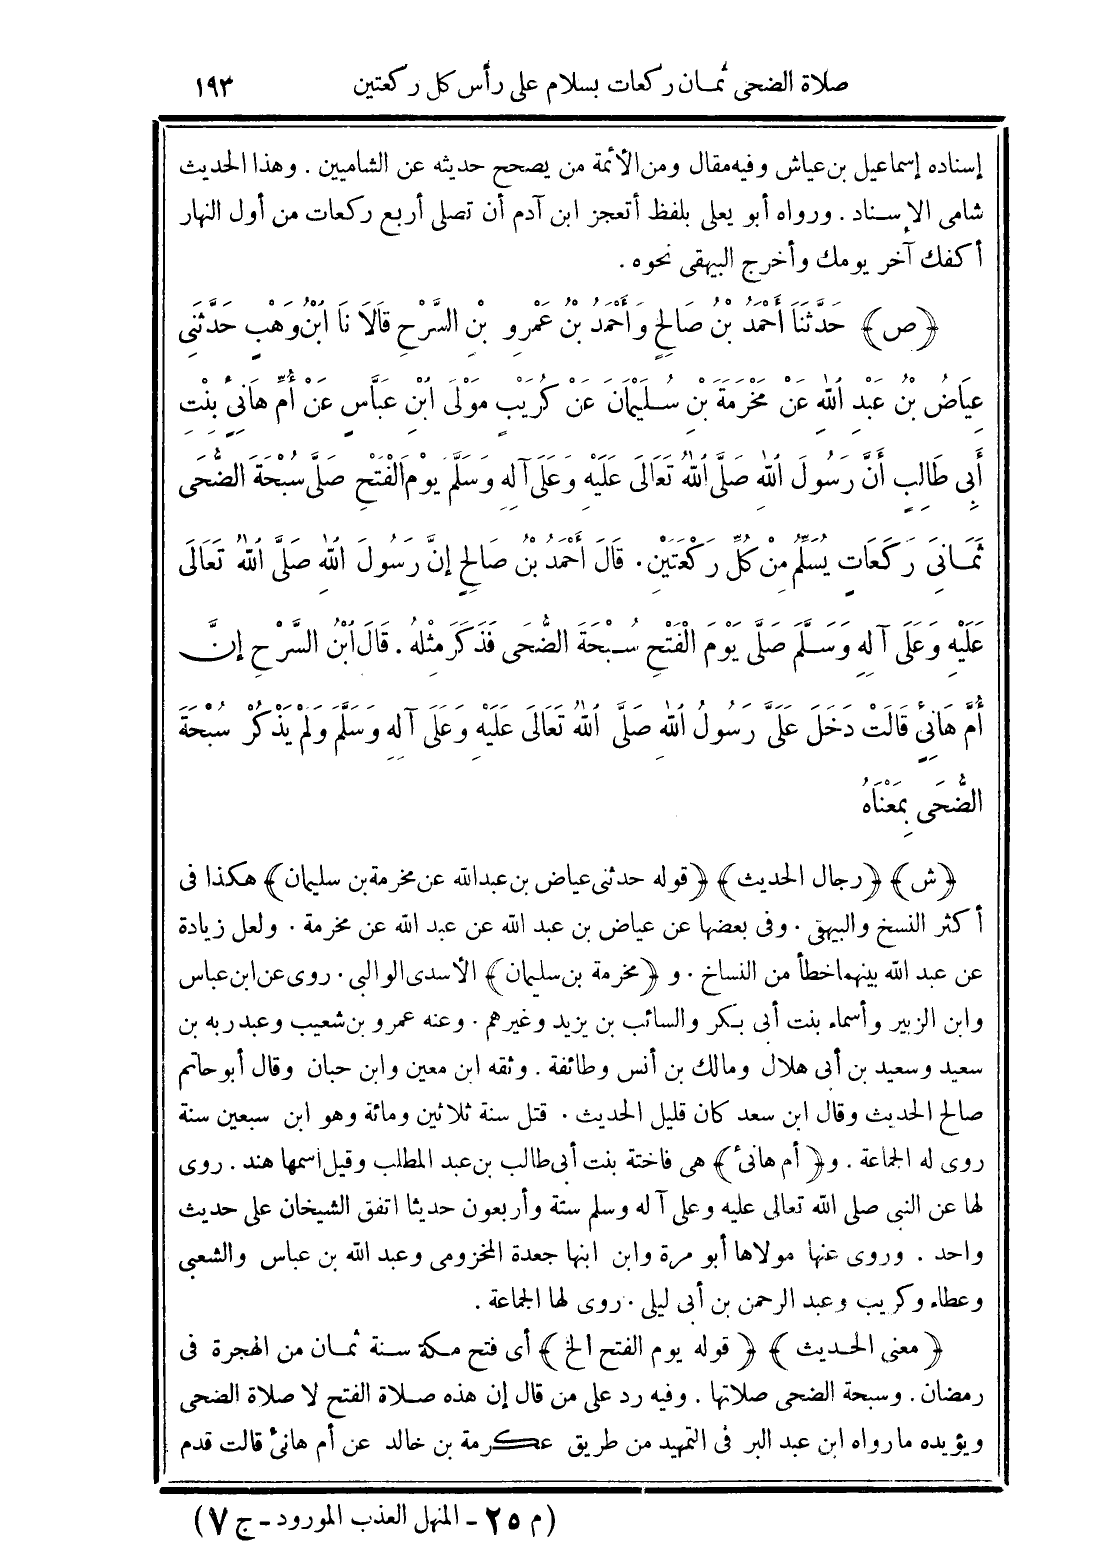 صلاة الضحى ثمان ركعات بسلام على رأس كل ركعتين ١٩٣
إسناده إسماعيل بن عياش وفيه مقال ومن الأئمة من يصحح حديثه عن الشاميين . وهذا الحديث
شامى الإسناد . ورواه أبو يعلى بلفظ أتعجز ابن آدم أن تصلى أربع ركعات من أول النهار
أكفك آخر يومك وأخرج البيهقى نحوه .
﴿ص﴾ حَدَّثَنَا أَحْمَدُ بْنُ صَالِحٍ وَأَحْمَدُ بْنُ عَمْرِو بْنِ السَّرْحِ قَالَا نَا ابْنُ وَهْبٍ حَدَّثَنِى
عِيَاضُ بْنُ عَبْدِ اللهِ عَنْ مَخْرَمَةَ بْنِ سُلَيْمَانَ عَنْ كُرَيْبٍ مَوْلَى ابْنِ عَبَّاسٍ عَنْ أُمِّ هَانِئٍ بِنْتِ
أَبِى طَالِبٍ أَنَّ رَسُولَ اللهِ صَلَّى اللهُ تَعَالَى عَلَيْهِ وَعَلَى آلِهِ وَسَلَّمَ يَوْمَ الْفَتْحِ صَلَّى سُبْحَةَ الضُّحَى
ثَمَانِىَ رَكَعَاتٍ يُسَلِّمُ مِنْ كُلِّ رَكْعَتَيْنِ . قَالَ أَحْمَدُ بْنُ صَالِحٍ إِنَّ رَسُولَ اللهِ صَلَّى اللهُ تَعَالَى
عَلَيْهِ وَعَلَى آلِهِ وَسَلَّمَ صَلَّى يَوْمَ الْفَتْحِ سُبْحَةَ الضُّحَى فَذَكَرَ مِثْلَهُ . قَالَ ابْنُ السَّرْحِ إِنَّ
أُمَّ هَانِئٍ قَالَتْ دَخَلَ عَلَىَّ رَسُولُ اللهِ صَلَّى اللهُ تَعَالَى عَلَيْهِ وَعَلَى آلِهِ وَسَلَّمَ وَلَمْ يَذْكُرْ سُبْحَةَ
الضُّحَى بِمَعْنَاهُ
﴿ش﴾ ﴿رجال الحديث﴾ ﴿قوله حدثنى عياض بن عبدالله عن مخرمة بن سليمان﴾ هكذا فى
أكثر النسخ والبيهقى . وفى بعضها عن عياض بن عبد الله عن عبد الله عن مخرمة . ولعل زيادة
عن عبد الله بينهما خطأ من النساخ . و ﴿مخرمة بن سليمان﴾ الأسدى الوالبي . روى عن ابن عباس
وابن الزبير وأسماء بنت أبى بكر والسائب بن يزيد وغيرهم . وعنه عمرو بن شعيب وعبدربه بن
سعيد وسعيد بن أبى هلال ومالك بن أنس وطائفة . وثقه ابن معين وابن حبان وقال أبوحاتم
صالح الحديث وقال ابن سعد كان قليل الحديث . قتل سنة ثلاثين ومائة وهو ابن سبعين سنة
روى له الجماعة . و﴿أم هانئ﴾ هى فاختة بنت أبى طالب بن عبد المطلب وقيل اسمها هند . روى
لها عن النبى صلى الله تعالى عليه وعلى آله وسلم ستة وأربعون حديثا اتفق الشيخان على حديث
واحد . وروى عنها مولاها أبو مرة وابن ابنها جعدة المخزومى وعبد الله بن عباس والشعبى
وعطاء وكريب وعبد الرحمن بن أبى ليلى . روى لها الجماعة .
﴿معنى الحديث﴾ ﴿قوله يوم الفتح الخ﴾ أى فتح مكة سنة ثمان من الهجرة فى
رمضان . وسبحة الضحى صلاتها . وفيه رد على من قال إن هذه صلاة الفتح لا صلاة الضحى
ويؤيده مارواه ابن عبد البر فى التمهيد من طريق عكرمة بن خالد عن أم هانئ قالت قدم
(م ٢٥ - المنهل العذب المورود - ج ٧)